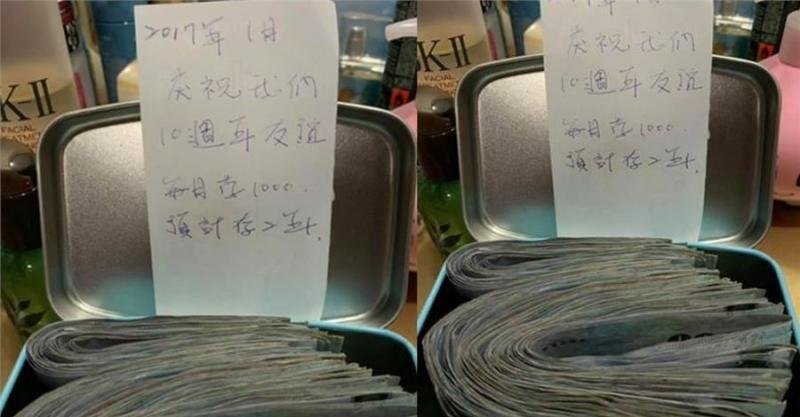 K-II
FACIAL
2017年 1月
庆祝我們
10週年友誼
每月存1000.
預計存2年.
K-II
FACIAL
庆祝我們
10週年友誼
每月存1000.
預計存2年.